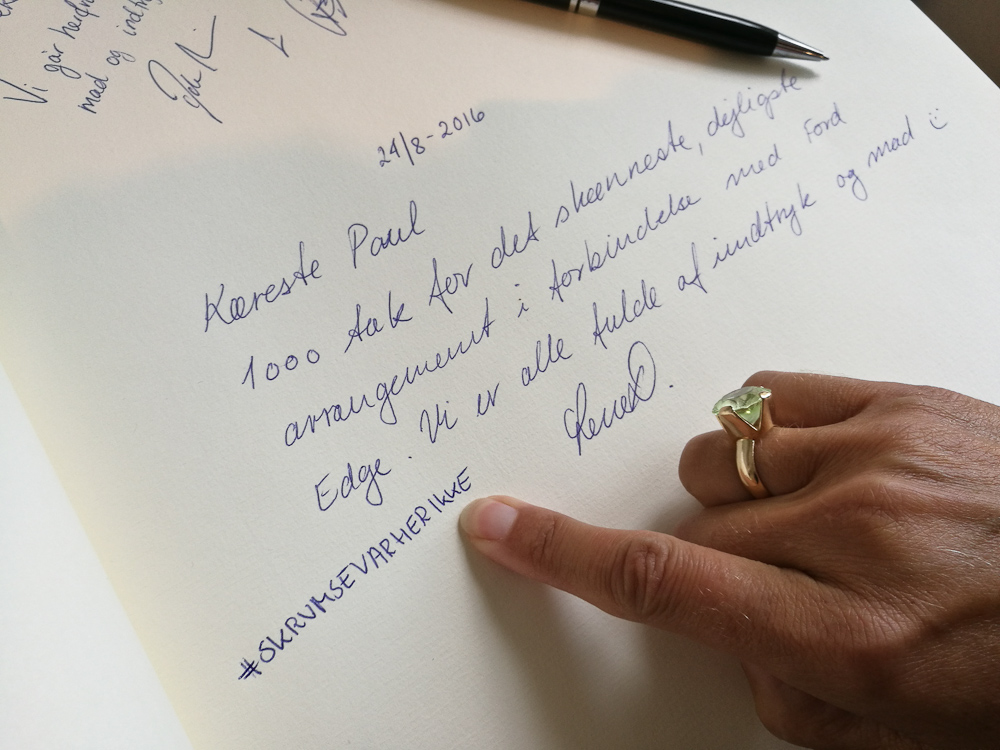 Vi går
mad og
24/8-2016
Kæreste Paul
1000 tak for det skønneste, dejligste
arrangement i forbindelse med Ford
Edge. Vi er alle fulde af indtryk og mad :)
#SKRUMSEVARHERIKKE